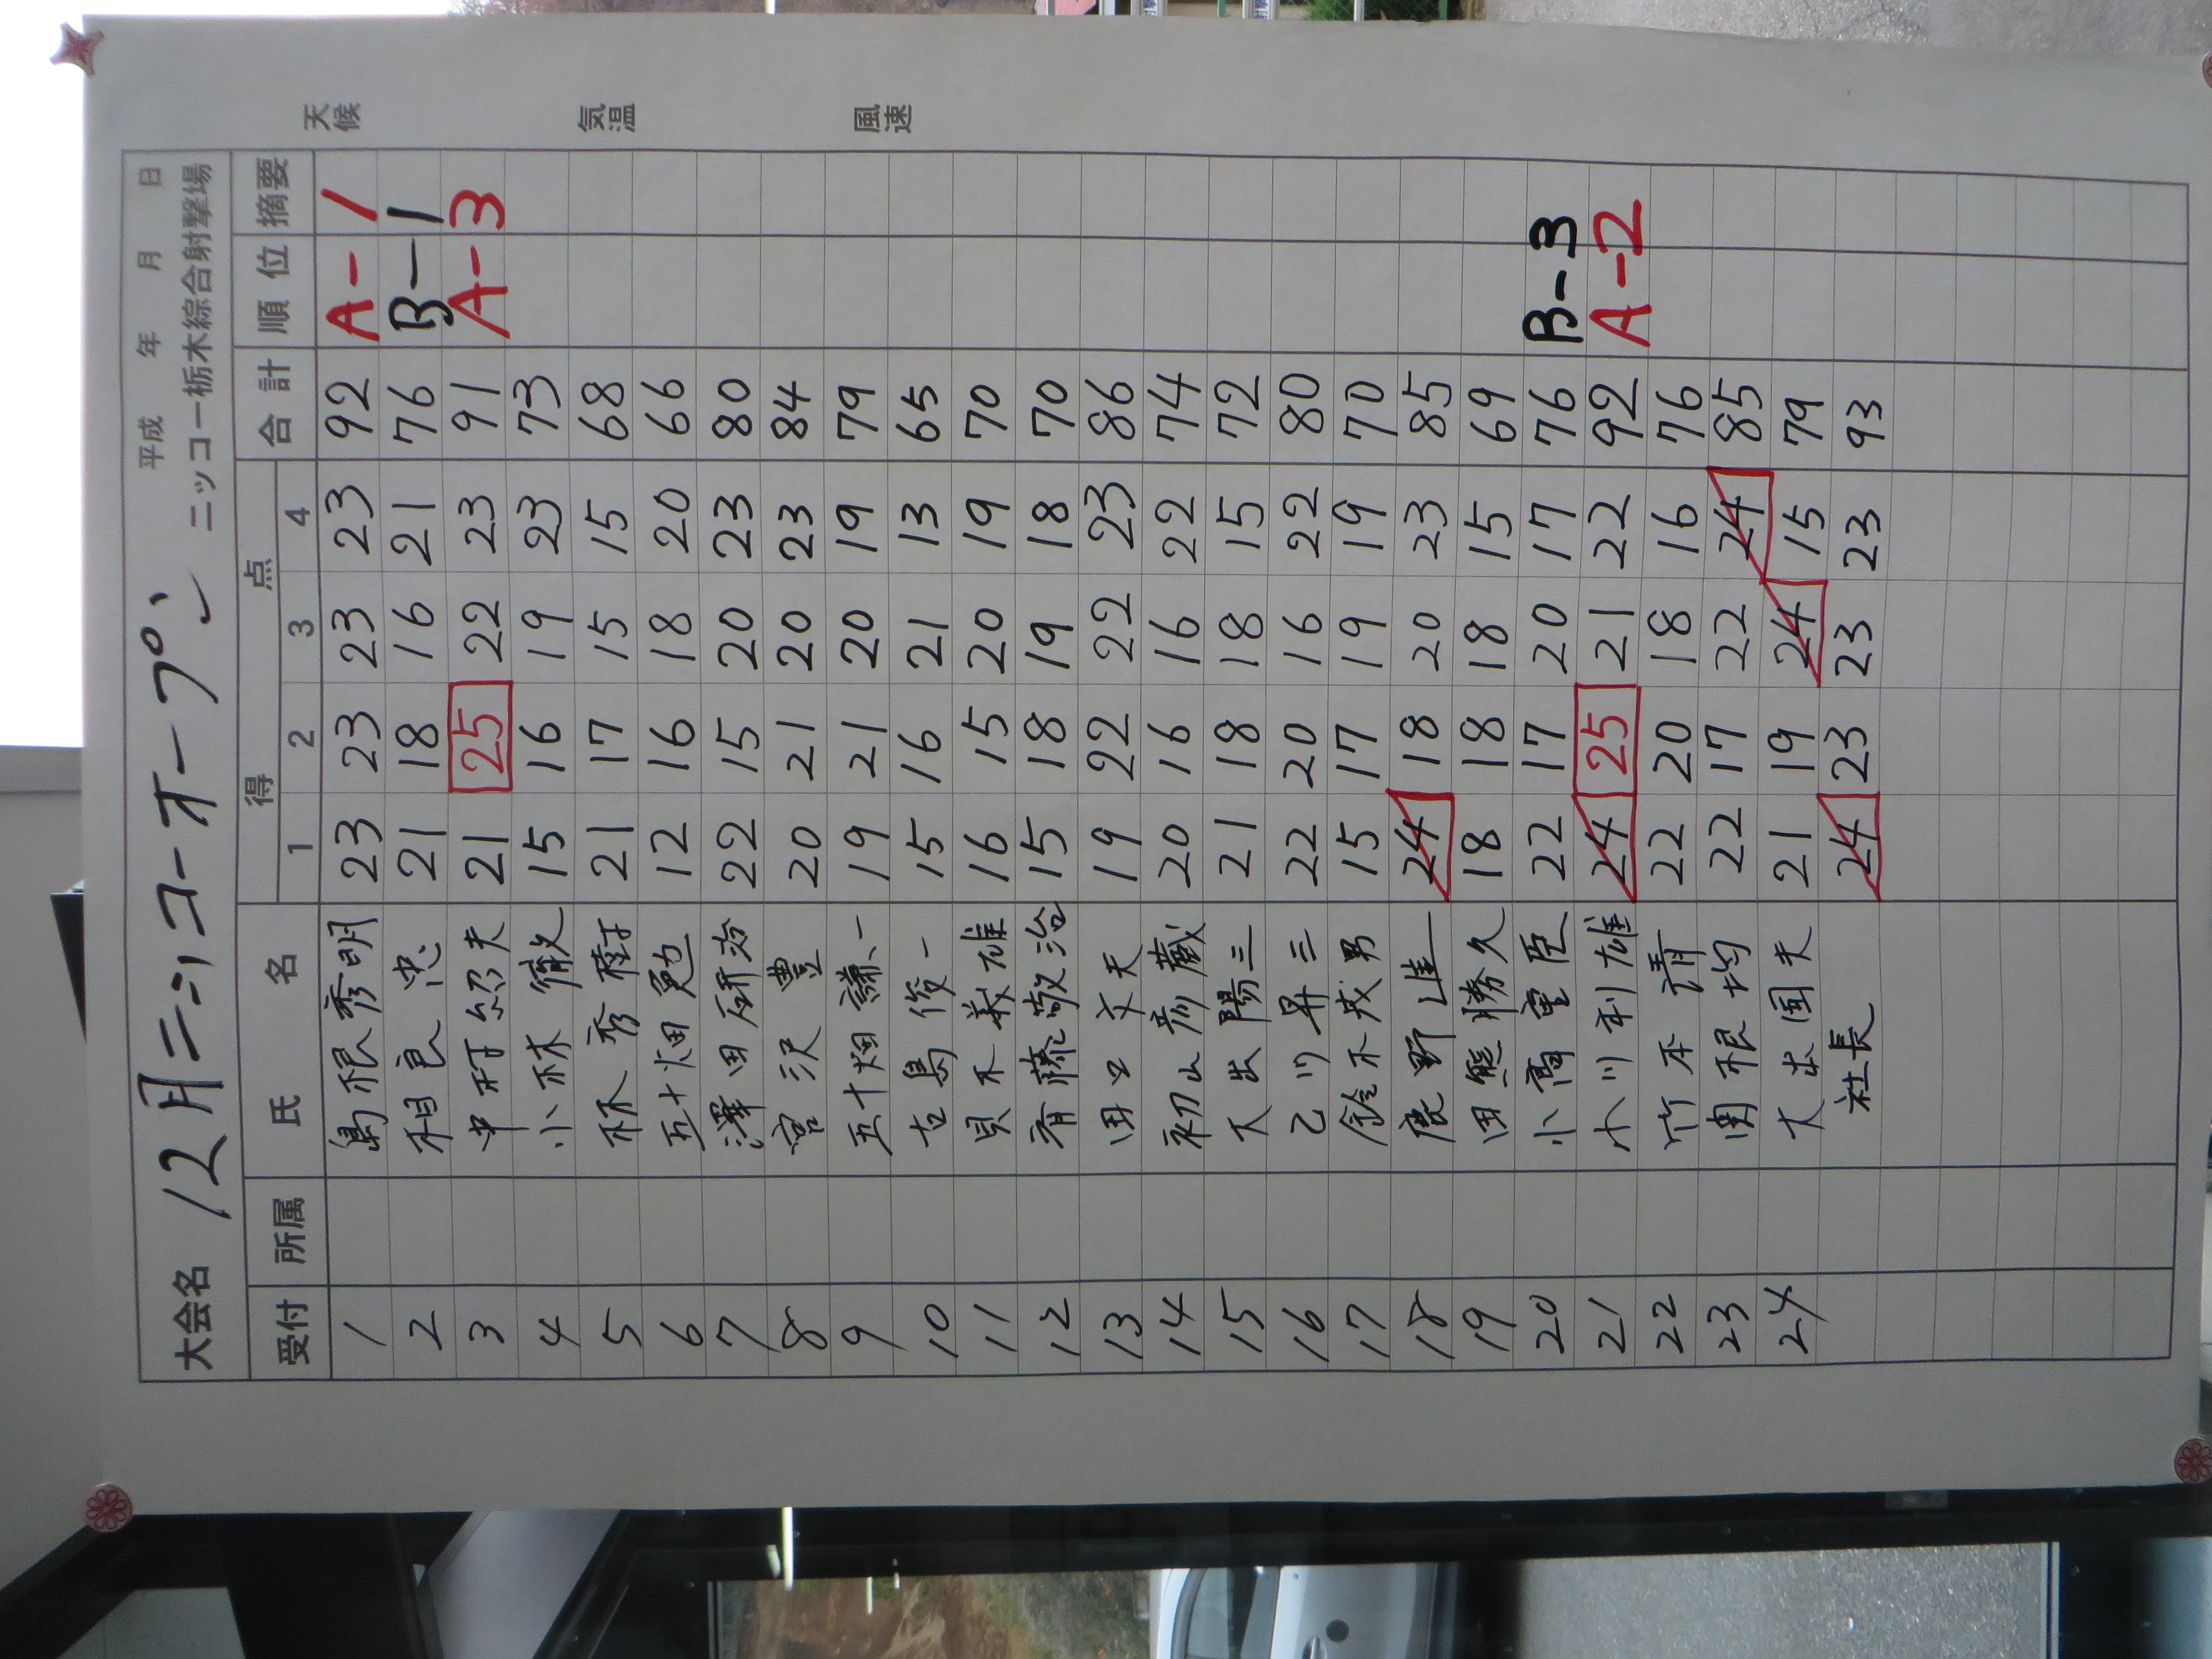 大会名 12月ニッコーオープン 平成 年 月 日
ニッコー栃木綜合射撃場
受付 所属 氏 名 得 点 合計 順位 摘要
1 2 3 4
天候
気温
風速
1 島根秀明 23 23 23 23 92 A-1
2 相良忠 21 18 16 21 76 B-1
3 中村紹夫 21 25 22 23 91 A-3
4 小林 15 16 19 23 73
5 林秀樹 21 17 15 15 68
6 五十畑勉 12 16 18 20 66
7 澤田研治 22 15 20 23 80
8 宮沢豊 20 21 20 23 84
9 五十畑謙一 19 21 20 19 79
10 古島俊一 15 16 21 13 65
11 貝木義雄 16 15 20 19 70
12 斉藤敬治 15 18 19 18 70
13 田口文夫 19 22 22 23 86
14 初山彦蔵 20 16 16 22 74
15 大出陽三 21 18 18 15 72
16 乙川昇三 22 20 16 22 80
17 鈴木茂男 15 17 19 19 70
18 鹿野雄一 24 18 20 23 85
19 田熊勝久 18 18 18 15 69
20 小高重臣 22 17 20 17 76 B-3
21 小川利雄 24 25 21 22 92 A-2
22 竹本清 22 20 18 16 76
23 関根均 22 17 22 24 85
24 大出国夫 21 19 24 15 79
社長 24 23 23 23 93